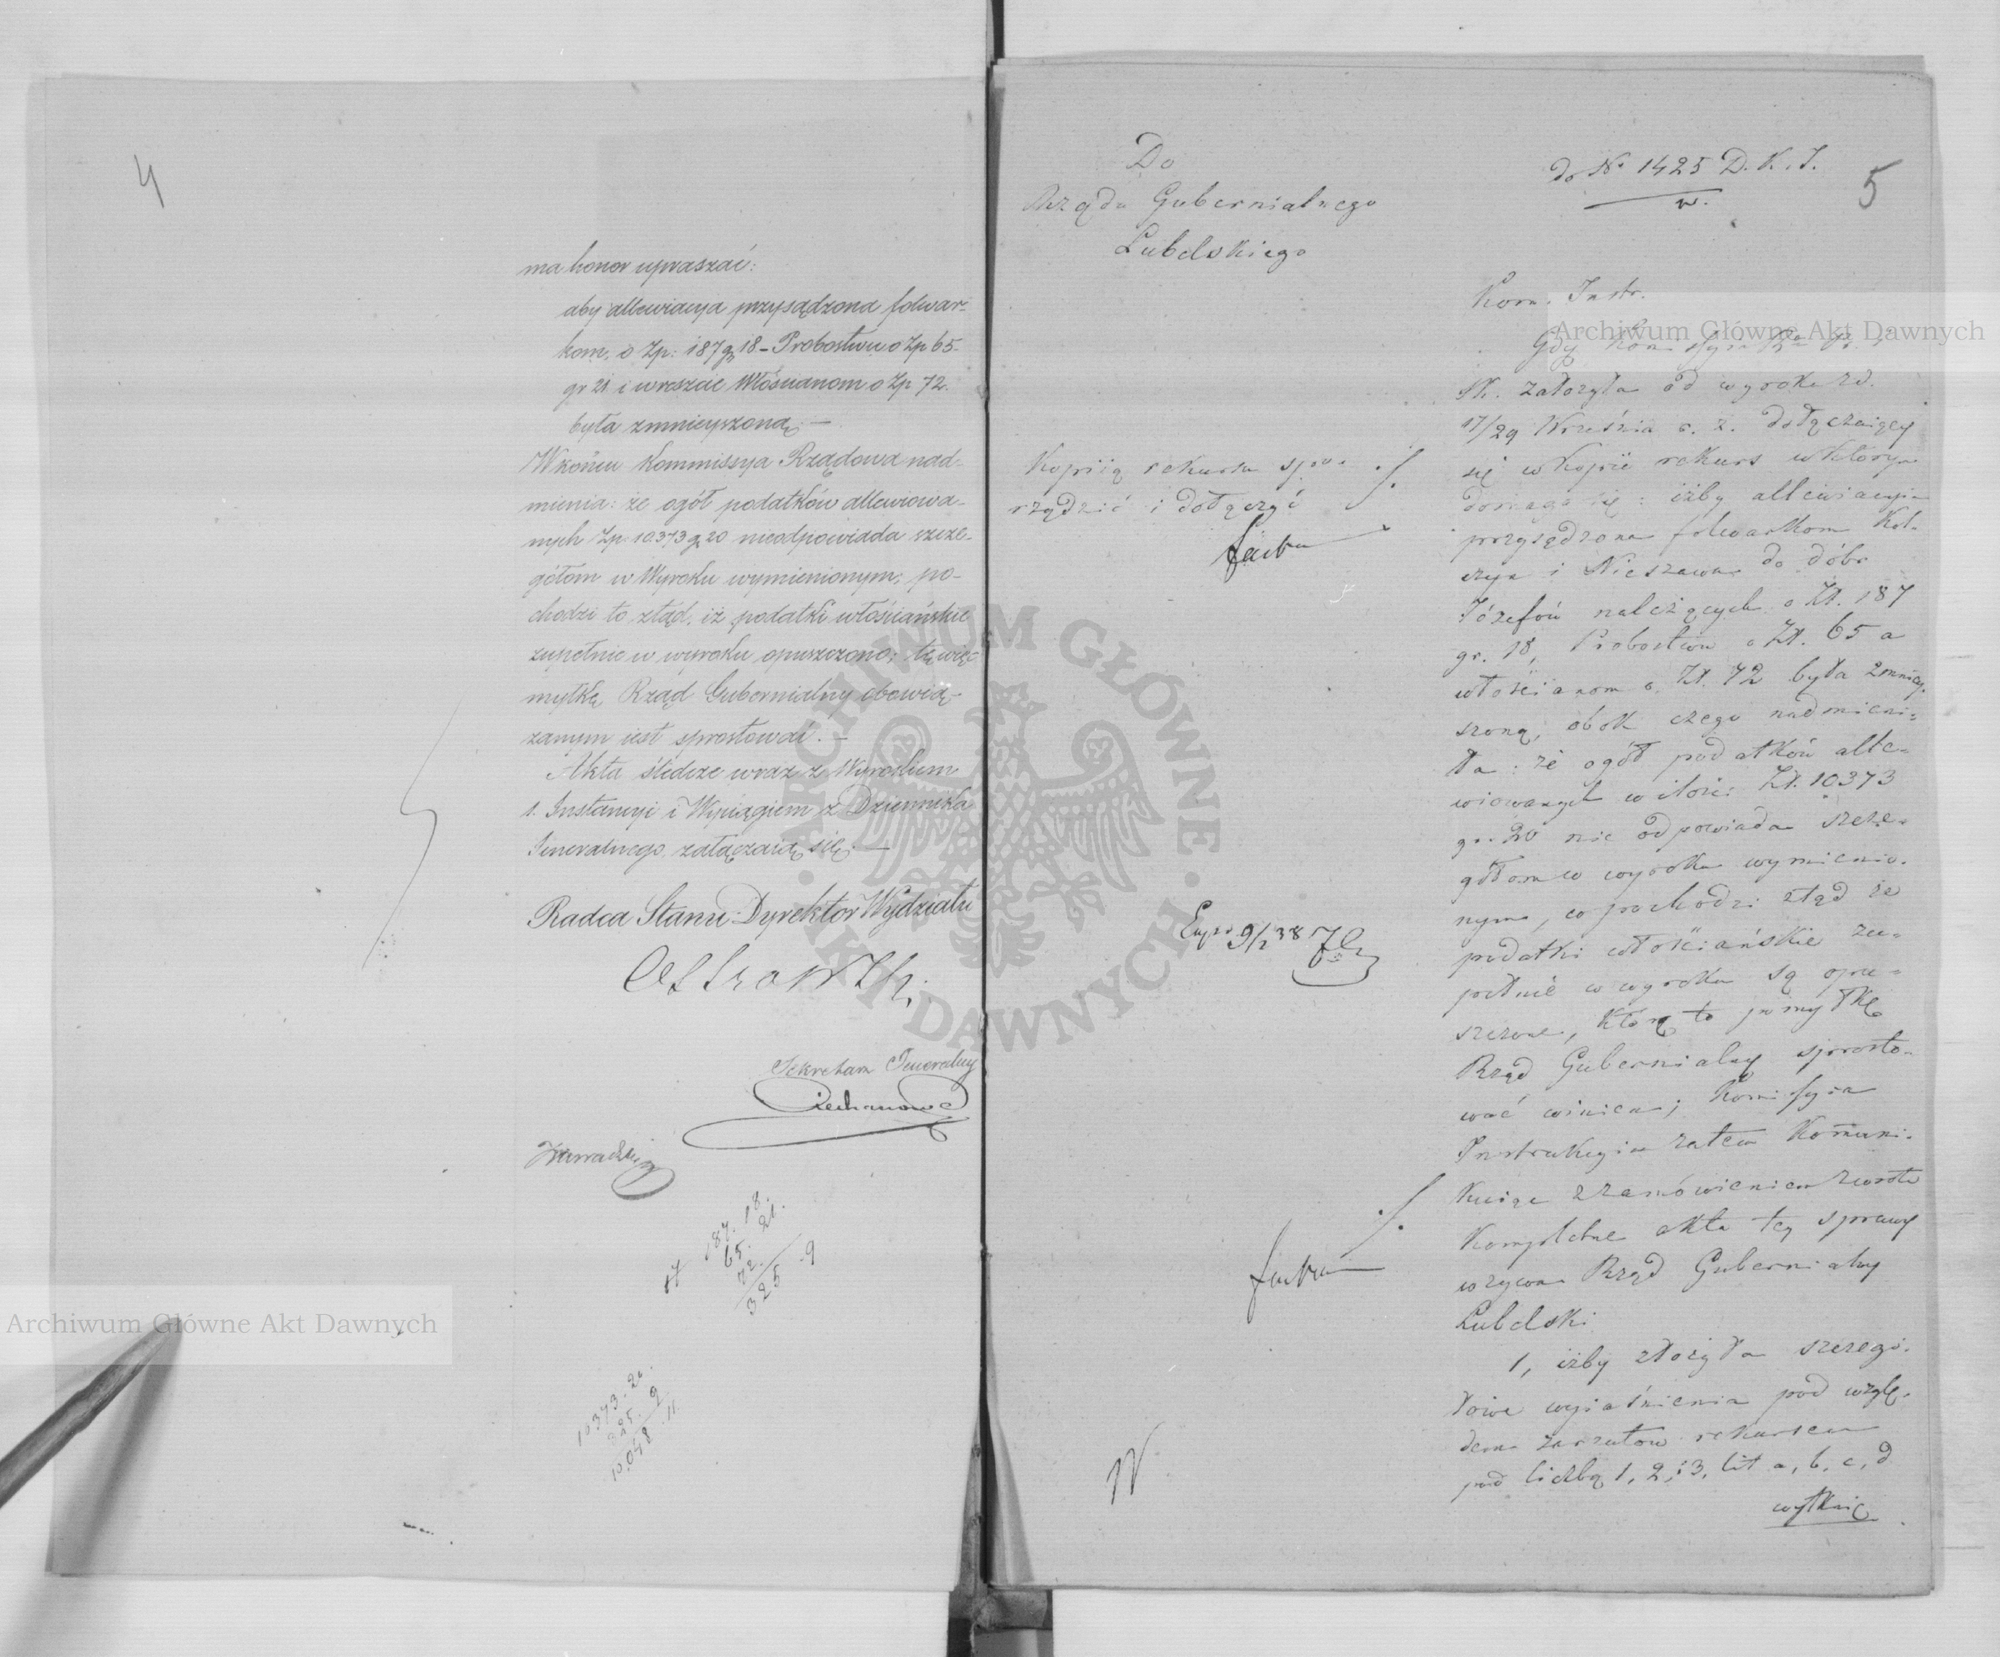 4
ma honor upraszać:
aby allewiacyja przysądzona folwar-
kom, o Zp: 187 gr 18 – Probostwu o Zp 65
gr 21 i wreszcie Włościanom o Zp 72.
była zmnieyszoną. —
W końcu Kommissya Rządowa nad-
mienia: że ogół podatków allewiowa-
nych Zp 10373 gr 20 nieodpowiada szcze-
gółom w Wyroku wymienionym, po-
chodzi to ztąd, iż podatki włościańskie
zupełnie w wyroku opuszczono; tę więc
myłkę Rząd Gubernialny obowią-
zanym iest sprostować. —
Akta śledcze wraz z Wyrokiem
1. Instancyi i Wyciągiem z Dziennika
Jeneralnego załączaią się. —
Radca Stanu Dyrektor Wydziału
Ostrowski
Sekretarz Jeneralny
187. 18.
65. 21.
72.
325 . 9
10373. 20.
325. 9
10,048. 11.
Do
Rządu Gubernialnego
Lubelskiego
do No 1425 D. K. I.
5
Kopiią rekursu spo-
rządzić i dołączyć
Exp. 9/1 38
Kom. Instr.
Gdy Kom
Sk. założyła od wyroku z d.
17/29 Września r. z. dołączaiący
się w kopii rekurs w którym
domaga się: iżby allewiacyia
przysądzona folwarkom Kol-
czyn i Nieszawa do dóbr
Józefów należących o Zł. 187
gr. 18, Probostwu o Zł. 65 a
włościanom o Zł. 72 była zmniey-
szoną, obok czego nadmieni-
ła: że ogół podatków alle-
wiowanych w ilości Zł. 10373
gr. 20 nie odpowiada szcze-
gółom w wyroku wymienio-
nym, co pochodzi ztąd że
podatki włościańskie zu-
pełnie w wyroku są opu-
szczone, którą to pomyłkę
Rząd Gubernialny sprosto-
wać winien; Komissyia
Instrukcyina zatem Kommuni-
kuiąc z zamówieniem zwrotu
Kompletne akta tey sprawy
wzywa Rząd Gubernialny
Lubelski
1, iżby złożyła szczegó-
łowe wyiaśnienia pod wzglę-
dem zarzutów rekursem
pod liczbą 1, 2, i 3, lit a, b, c, d
wytknię
Archiwum Główne Akt Dawnych
Archiwum Główne Akt Dawnych
ARCHIWUM GŁÓWNE AKT DAWNYCH